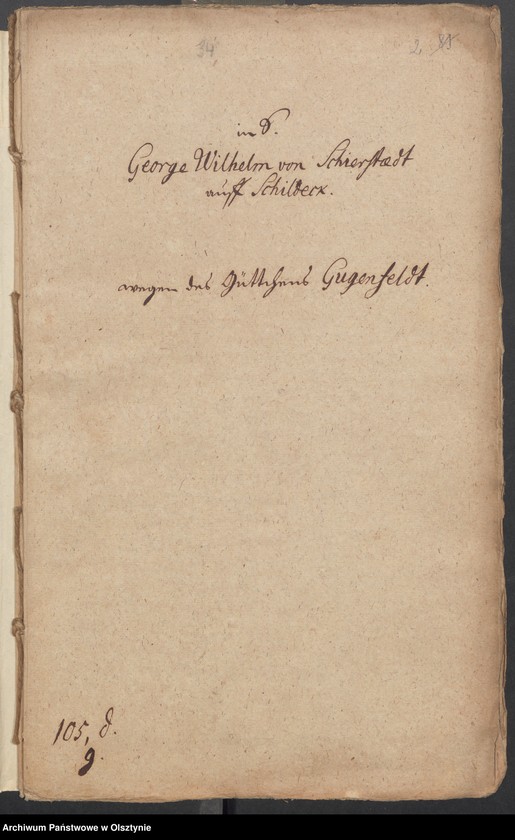 34 2, 85
in S.
George Wilhelm von Schierstædt
auff Schildeck.
wegen des Güttchens Gugenfeldt.
105, d.
9.
Archiwum Państwowe w Olsztynie